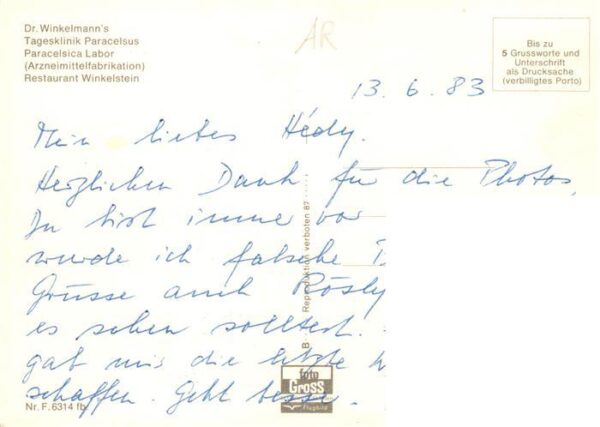 Dr. Winkelmann's
Tagesklinik Paracelsus
Paracelsica Labor
(Arzneimittelfabrikation)
Restaurant Winkelstein
AR
Bis zu
5 Grussworte und
Unterschrift
als Drucksache
(verbilligtes Porto)
13. 6. 83
Mein liebes Hédy.
Herzlichen Dank für die Photos,
Du bist immer vor
wurde ich falsche
Grüsse auch Rösly
es sehen solltest.
gab mis die letzte
schaffen. Geht besse.
B Reproduktion verboten 87
foto
Gross
Flugbild
Nr. F. 6314 fb